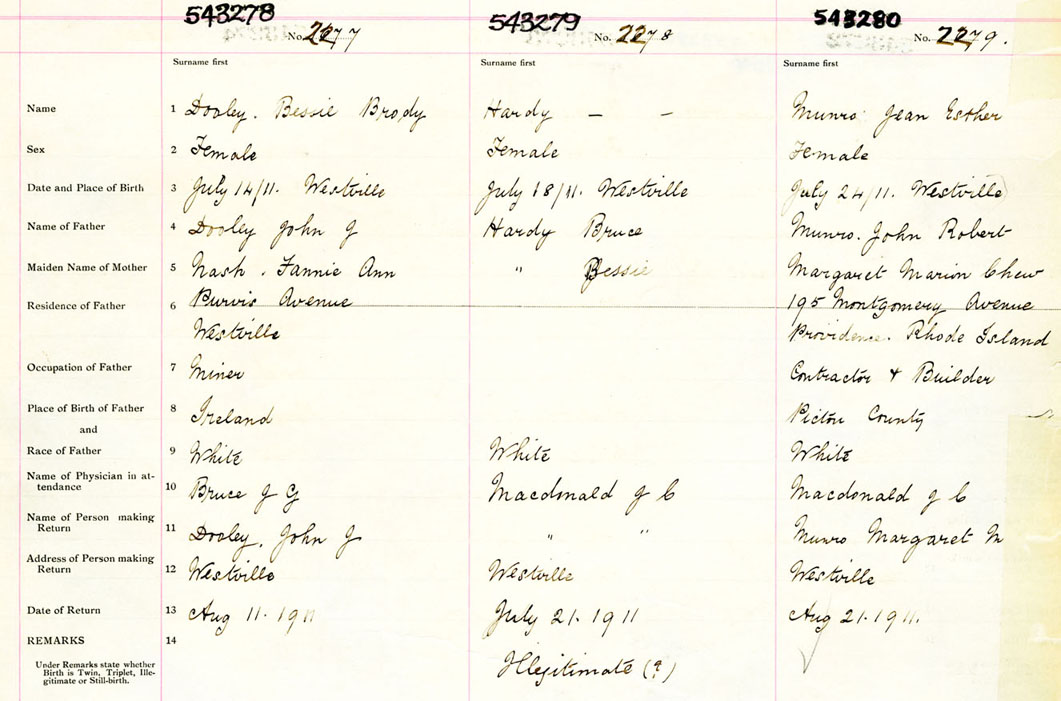 543278 543279 543280
No. 2277 No. 2278 No. 2279.
Surname first Surname first Surname first
Name 1 Dooley. Bessie Brody Hardy — — Munro. Jean Esther
Sex 2 Female Female Female
Date and Place of Birth 3 July 14/11. Westville July 18/11. Westville July 24/11. Westville
Name of Father 4 Dooley John J Hardy Bruce Munro. John Robert
Maiden Name of Mother 5 Nash. Fannie Ann " Bessie Margaret Marion Chew
Residence of Father 6 Purvis Avenue 195 Montgomery Avenue
Westville Providence. Rhode Island
Occupation of Father 7 Miner Contractor + Builder
Place of Birth of Father 8 Ireland Pictou County
and
Race of Father 9 White White White
Name of Physician in at-
tendance 10 Bruce J G Macdonald J C Macdonald J C
Name of Person making
Return 11 Dooley, John J " " Munro Margaret M
Address of Person making
Return 12 Westville Westville Westville
Date of Return 13 Aug 11. 1911 July 21. 1911 Aug 21. 1911.
REMARKS 14
Under Remarks state whether
Birth is Twin, Triplet, Ille-
gitimate or Still-birth.
Illegitimate (?)